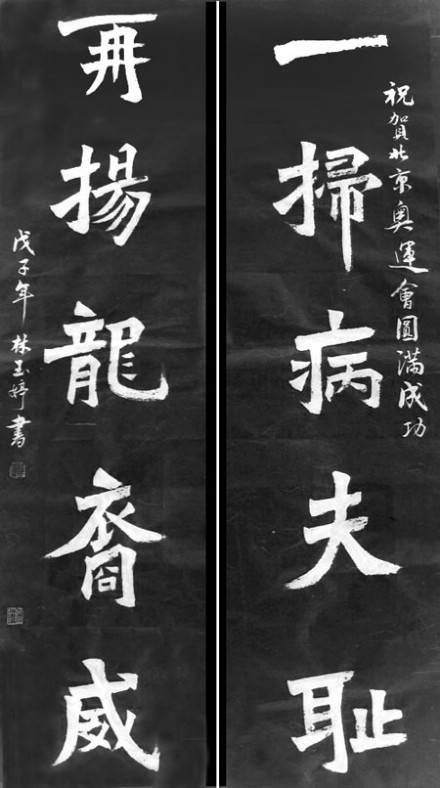 祝賀北京奧運會圓滿成功
一掃病夫耻
再揚龍裔威
戊子年 林玉婷書